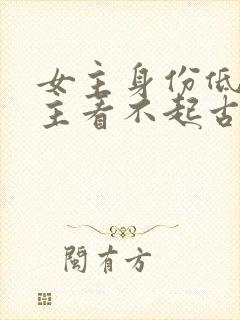 女主身份低
主看不起古
闽有方